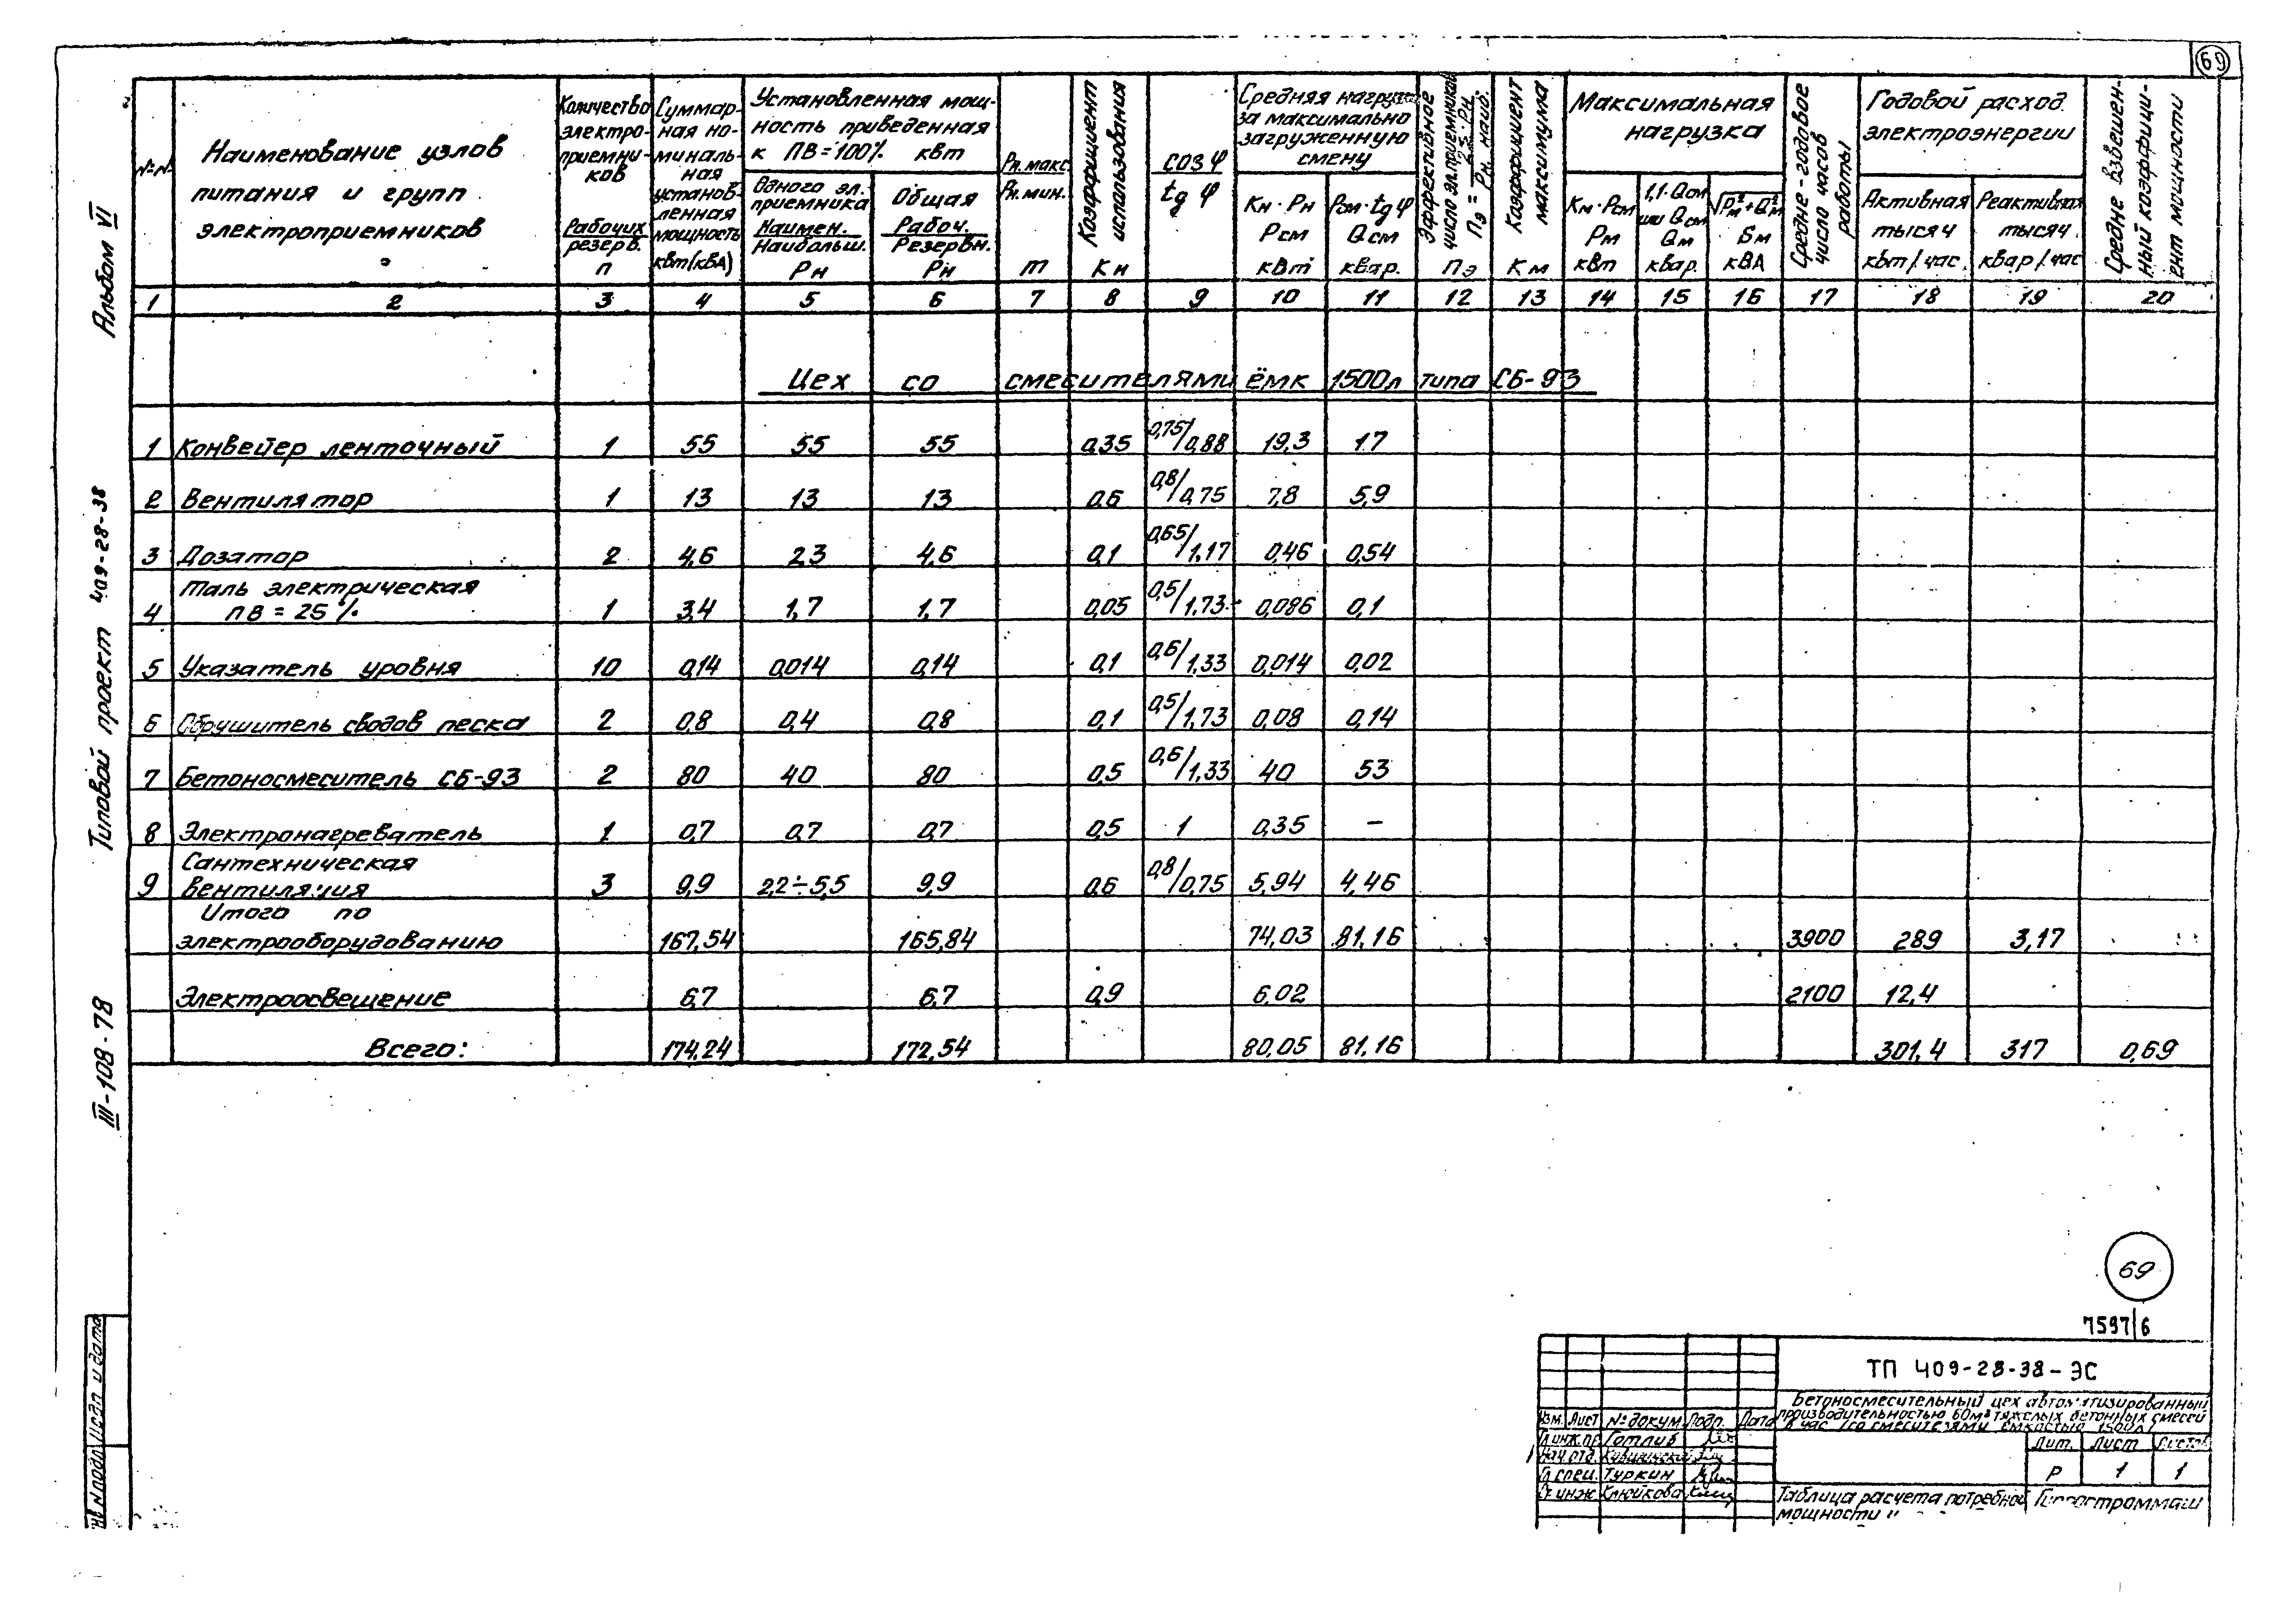 69
Альбом VI
Типовой проект 409-28-38
III-108-78
№№
Наименование узлов
питания и групп
электроприемников
Количество
электро-
приемни-
ков
Рабочих
резерв.
n
Суммар-
ная но-
миналь-
ная
установ-
ленная
мощность
квт(кВА)
Установленная мощ-
ность приведенная
к ПВ=100% квт
Одного эл.
приемника
Наимен.
Наибольш.
Рн
Общая
Рабоч.
Резервн.
Рн
Рн.макс.
Рн.мин.
m
Коэффициент
использования
Кн
cos φ
tg φ
Средняя нагрузка
за максимально
загруженную
смену
Кн·Рн
Рсм
квт
Рсм·tgφ
Qсм
квар.
Эффективное
число эл.приемников
Пэ
Коэффициент
максимума
Км
Максимальная
нагрузка
Км·Рсм
Рм
квт
1,1·Qсм
или Qсм
Qм
квар.
√Рм²+Qм²
Sм
кВА
Средне-годовое
число часов
работы
Годовой расход
электроэнергии
Активная
тысяч
квт/час.
Реактивная
тысяч
квар/час
Средне взвешен-
ный коэффици-
ент мощности
1 2 3 4 5 6 7 8 9 10 11 12 13 14 15 16 17 18 19 20
Цех со смесителями ёмк 1500л типа СБ-93
1 Конвейер ленточный 1 55 55 55 0,35 0,75/0,88 19,3 17
2 Вентилятор 1 13 13 13 0,6 0,8/0,75 7,8 5,9
3 Дозатор 2 4,6 2,3 4,6 0,1 0,65/1,17 0,46 0,54
Таль электрическая
4 ПВ=25% 1 3,4 1,7 1,7 0,05 0,5/1,73 0,086 0,1
5 Указатель уровня 10 0,14 0,014 0,14 0,1 0,6/1,33 0,014 0,02
6 Обрушитель сводов песка 2 0,8 0,4 0,8 0,1 0,5/1,73 0,08 0,14
7 Бетоносмеситель СБ-93 2 80 40 80 0,5 0,6/1,33 40 53
8 Электронагреватель 1 0,7 0,7 0,7 0,5 1 0,35 –
Сантехническая
9 вентиляция 3 9,9 2,2÷5,5 9,9 0,6 0,8/0,75 5,94 4,46
Итого по
электрооборудованию 167,54 165,84 74,03 81,16 3900 289 3,17
Электроосвещение 6,7 6,7 0,9 6.02 2100 12,4
Всего: 174,24 172,54 80,05 81,16 301,4 317 0,69
69
7597/6
ТП 409-28-38-ЭС
Бетоносмесительный цех автоматизированный
производительностью 60м³ тяжелых бетонных смесей
в час (со смесителями емкостью 1500л)
Изм. Лист № докум. Подп. Дата
Гл.инж.пр. Готлиб
Нач.отд.
Гл.спец. Туркин
Ст.инж. Клюйкова
Лит. Лист Листов
Р 1 1
Таблица расчета потребной
мощности
Гипростроммаш
Инв.№ подл. Подп. и дата